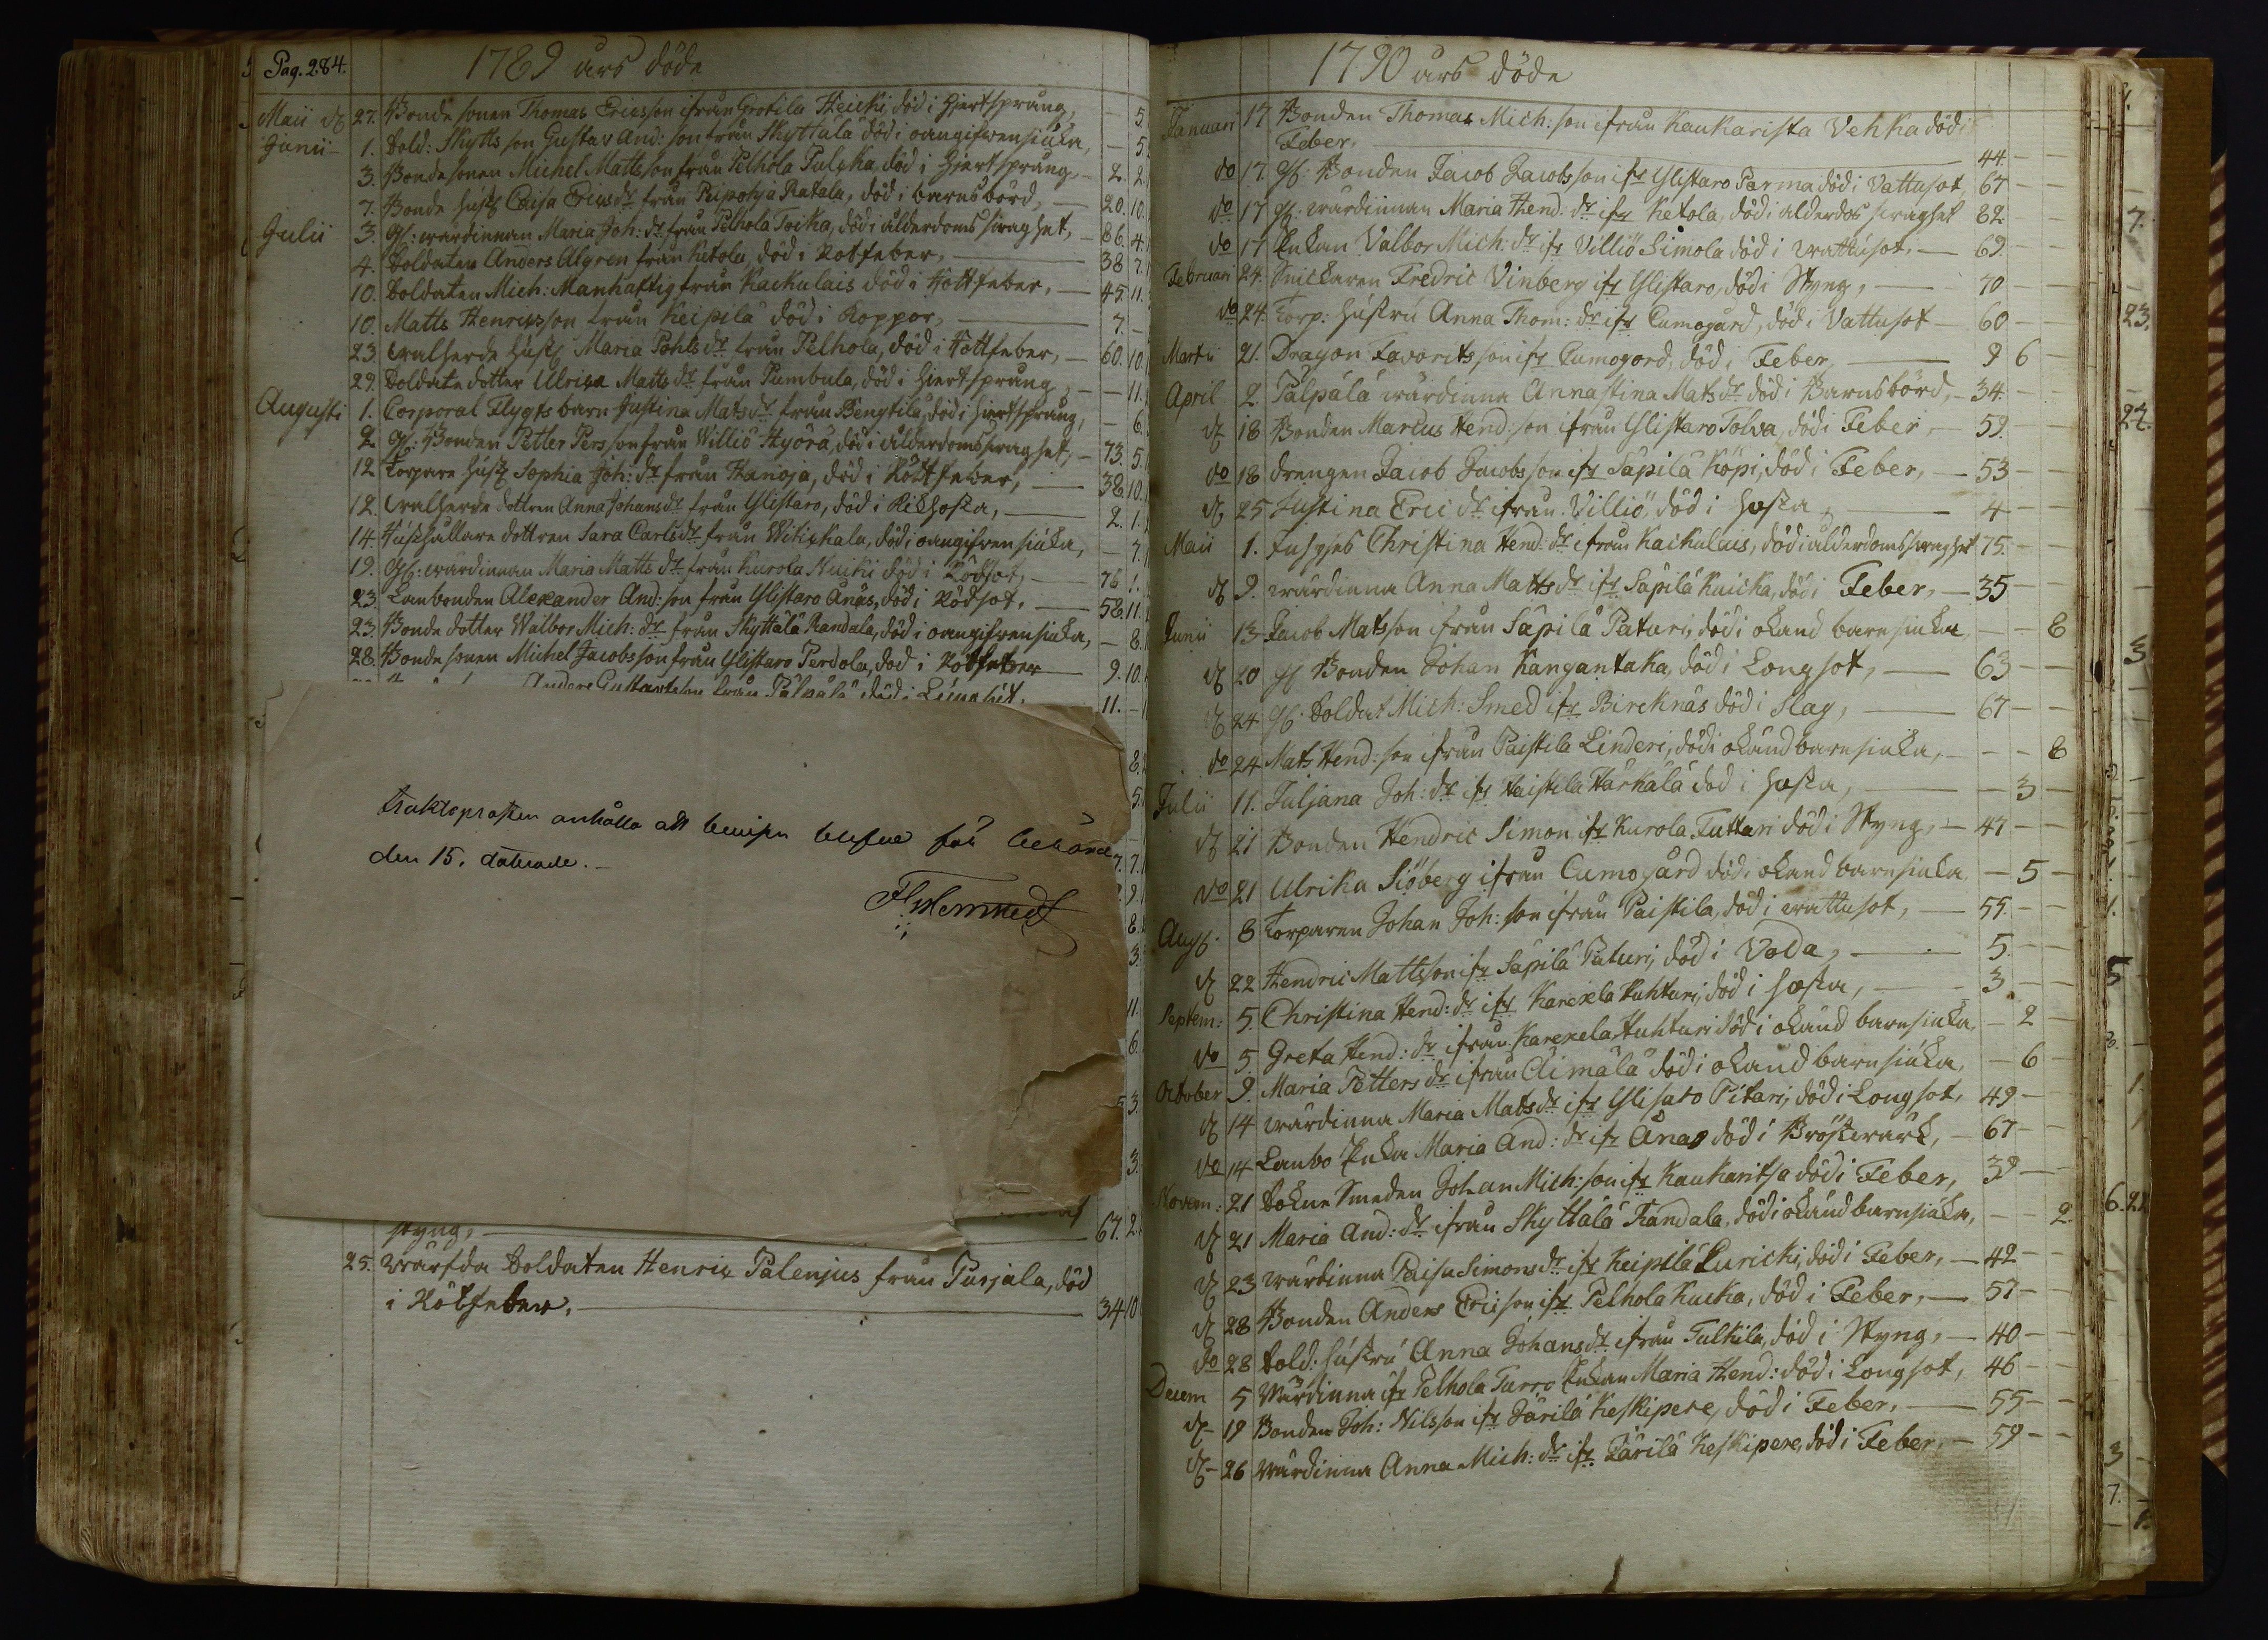 Pag. 284.
1789 års döde
Maii d 27. Bonde sonen Thomas Ericsson ifrån Grotila Heicki död i hjertsprång, — 5
Junii 1. Sold: Skytts son Gustav And: son från Skyttälä död i oangifven siuka, — 5
3. Bonde sonen Michel Mattsson från Pelhola död i hjertsprång, — 2. 2
7. Bonde hust Caisa Ericsdr från Ratala, död i barnsbörd, — 20. 10.
Julii 3. gl: wärdinnan Maria Joh: dr från Pelhola död i ålderdoms swaghet, — 86. 4.
4. Soldaten Anders Algren från Ketola, död i Rötfeber, — 38 7.
10. Soldaten Mich: Manhaftig från Kackulais död i Rötfeber, — 45. 11.
10. Matts Henricsson från Keipilä död i Koppor, — 7. -
23. hust Maria Pohlsdr från Pelhola, död i Rottfeber, — 60. 10.
29. Soldate dotter Ulrica Matts dr från Pumbula, död i hjertsprång, — 11.
Augusti 1. Corporal Flygts barn Justina Matsdr från Bengtilä, död i hjertsprång, — 6.
2. gl: Bonden Petter Persson från Williö Hyörä, död i ålderdoms swaghet, — 73. 5.
12 Torpare hust Sophia Joh: dr från Hanoja, död i Rötfeber, — 38. 10.
12. dottren Anna Johansdr från Ylistaro, död i Kikhosta, — 2. 1.
14. Hushållare dottren Sara Carlsdr från Witickala, död i oangifven siuka, — 7.
19. gl: wärdinnan Maria Matts dr från Kurola Nucki död i Rödsot, — 76 1.
23. Lanbonden Alexander And: son från Ylistaro Anäs, död i Rödsot, — 58. 11.
23. Bonde dotter Walbor Mich: dr från Skyttälä Randala, död i oangifven siuka, — 8.
28. Bonde sonen Michel Jacobsson från Ylistaro Perdola, död i Rötfeber — 9. 10.
Anders från Pälpälä död i 11. -
anhålla att
den 15. daterade. —
styng, — 67. 2.
25. Wärfda Soldaten Henric Palenjus från Purjala, död
i Rötfeber. — 34 10
1790 års döde
Januari 17 Bonden Thomas Mich: son ifrån Kaukarista Vehka död i
Feber, — 44 -
do 17. gl: Bonden Jacob Jacobsson ifr Ylistaro Parma död i Vattusot, 67 -
do 17 gl: wärdinnan Maria Hend: dr ifr Ketola, död i alderdos swaghet 82. -
do 17 Enkan Valbor Mich: dr ifr Villiö Simola död i wattusot, — 69.
Februari 24. Snickaren Fredric Vinberg ifr Ylistaro, död i Styng, — 70
do 24. Torp: hustru Anna Thom: dr ifr Cumogård, död i Vattusot — 60 -
Martii 21. Dragon Favorits son ifr Cumogord, död i Feber, — 9 6 -
April 2 Pälpälä wärdinna Annastina Matsdr död i Barnsbörd, — 34 -
d 18 Bonden Marcus Hend: son ifrån Ylistaro Tolva, död i Feber, — 59.
do 18 drengen Jacob Jacobsson ifr Säpilä Köpi, död i Feber, — 53 -
d 25 Justina Eric dr ifrån Villiö död i hosta, — 4 -
Maii 1. Christina Hend: dr ifrån Kackulais, död i ålderdoms swaghet 75. -
d 9 wärdinna Anna Matts dr ifr Säpilä Kuicka, död i Feber, — 35
Junii 13 Jacob Matsson ifrån Säpilä Paturi, död i okänd barnsiuka, — — 8
d 20 gl Bonden Johan Kangantaka, död i Longsot, — 63 -
d 24 gl. Soldat Mich: Smed ifr Bircknäs död i Slag, — 67 -
do 24 Mats Hend: son ifrån Paistila Linderi, död i okänd barnsiuka, — — 8
Julii 11. Juljana Joh: dr ifr Härkälä död i hosta, — 3
d 21 Bonden Hendric Simon ifr Kurola Tuttari död i Styng, — 47 -
do 21 Ulrika Siöberg ifrån Cumogård död i okänd barnsiuka, — 5 -
Aug: 8 Torparen Johan Joh: son ifrån Paistila, död i wattusot, — 55. -
d 22 Hendric Mattsson ifr Säpilä Paturi, död i Våda, — 5.
Septem: 5. Christina Hend: dr ifr Karexela Huhturi, död i hosta, — 3 -
do 5. Greta Hend: dr ifrån Karexela Huhturi död i okänd barnsiuka, — 2 -
October 9. Maria Petters dr ifrån Äimälä död i okänd barnsiuka, — 6 -
d 14 wärdinna Maria Matsdr ifr Ylisaro Pitari, död i Longsot, 49 -
do 14 Lanbo Enka Maria And: dr ifr Anäs död i Bröstwärk, — 67 -
Novem: 21 Sokne Smeden Johan Mich: son ifr Kaukaritsa död i Feber, 39 -
d 21 Maria And: dr ifrån Skyttälä Randala, död i okänd barnsiuka, — 2.
d 23 wärdinna Caisa Simonsdr ifr Keipilä Luricki, död i Feber, — 42 -
d 28 Bonden Anders Ericson ifr Pelhola Kucka, död i Feber, — 57 -
do 28 Sold: hustru Anna Johansdr ifrån Tulkila, död i Styng, — 40 -
Decem 5 Wärdinna ifr Pelhola Turro Enkan Maria Hend: död i Longsot, 46 -
d 19 Bonden Joh: Nilsson ifr Järilä Keskipere, död i Feber, — 55 -
d 26 Wärdinna Anna Mich: dr ifr Järilä Keskipere, död i Feber, — 59 -